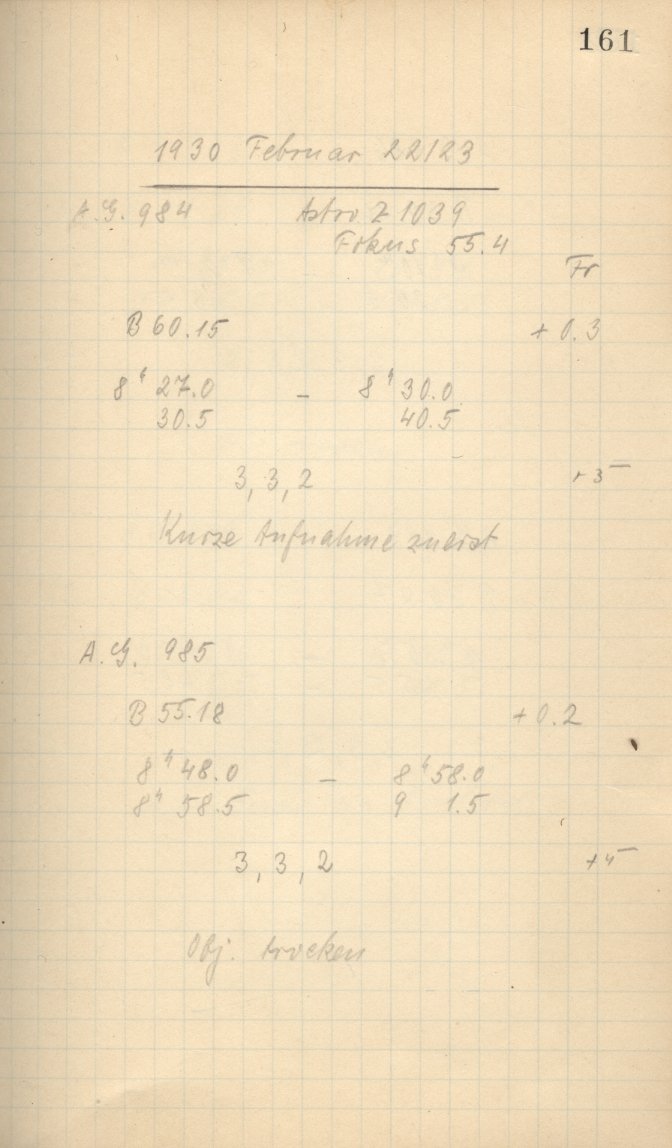 161
1930 Februar 22/23
A.G. 984 Astro Z 1039
Fokus 55.4
Fr
B 60.15 + 0.3
8ʰ 27.0 – 8ʰ 30.0
30.5 40.5
3, 3, 2 + 3
Kurze Aufnahme zuerst
A.G. 985
B 55.18 + 0.2
8ʰ 48.0 – 8ʰ 58.0
8ʰ 58.5 9 1.5
3, 3, 2 + 4
Obj. trocken